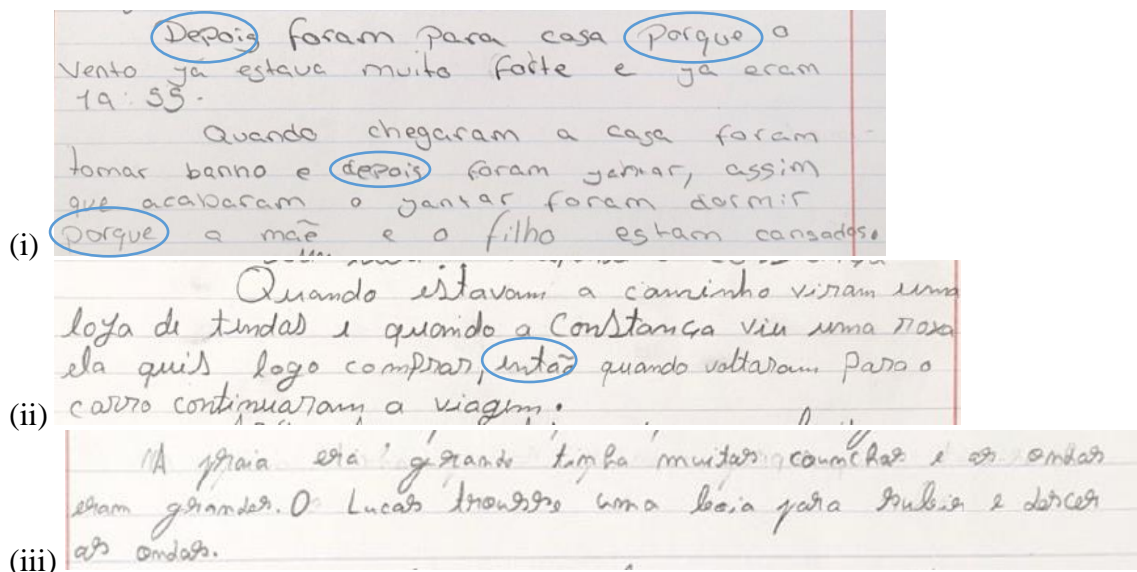 Depois foram para casa porque o
vento já estava muito forte e já eram
19:55.
Quando chegaram a casa foram
tomar banno e depois foram jantar, assim
que acabaram o jantar foram dormir
(i) porque a mãe e o filho estam cansados.
Quando estavam a caminho viram uma
loja de tendas e quando a Constança viu uma roxa
ela quis logo comprar, então quando voltaram para o
(ii) carro continuaram a viagem.
A praia era grande tinha muitas counchas e as ondas
eram grandes. O Lucas trousse uma boia para subir e descer
(iii) as ondas.